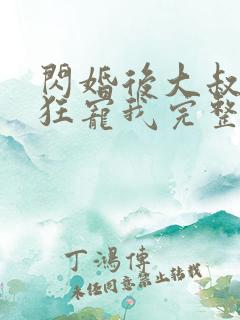 閃婚後大叔
狂寵我完整
丁鴻傳
未經同意禁止轉載